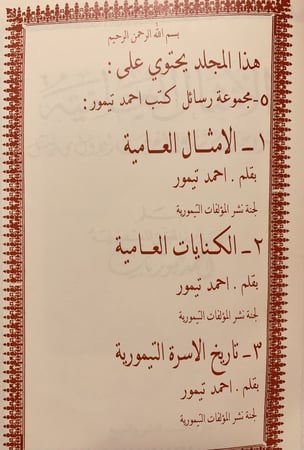 بسم الله الرحمن الرحيم
هذا المجلد يحتوي على :
٥-مجموعة رسائل كتب احمد تيمور :
١ - الامثال العامية
بقلم . احمد تيمور
لجنة نشر المؤلفات التيمورية
٢ - الكنايات العامية
بقلم . احمد تيمور
لجنة نشر المؤلفات التيمورية
٣ - تاريخ الاسرة التيمورية
بقلم . احمد تيمور
لجنة نشر المؤلفات التيمورية